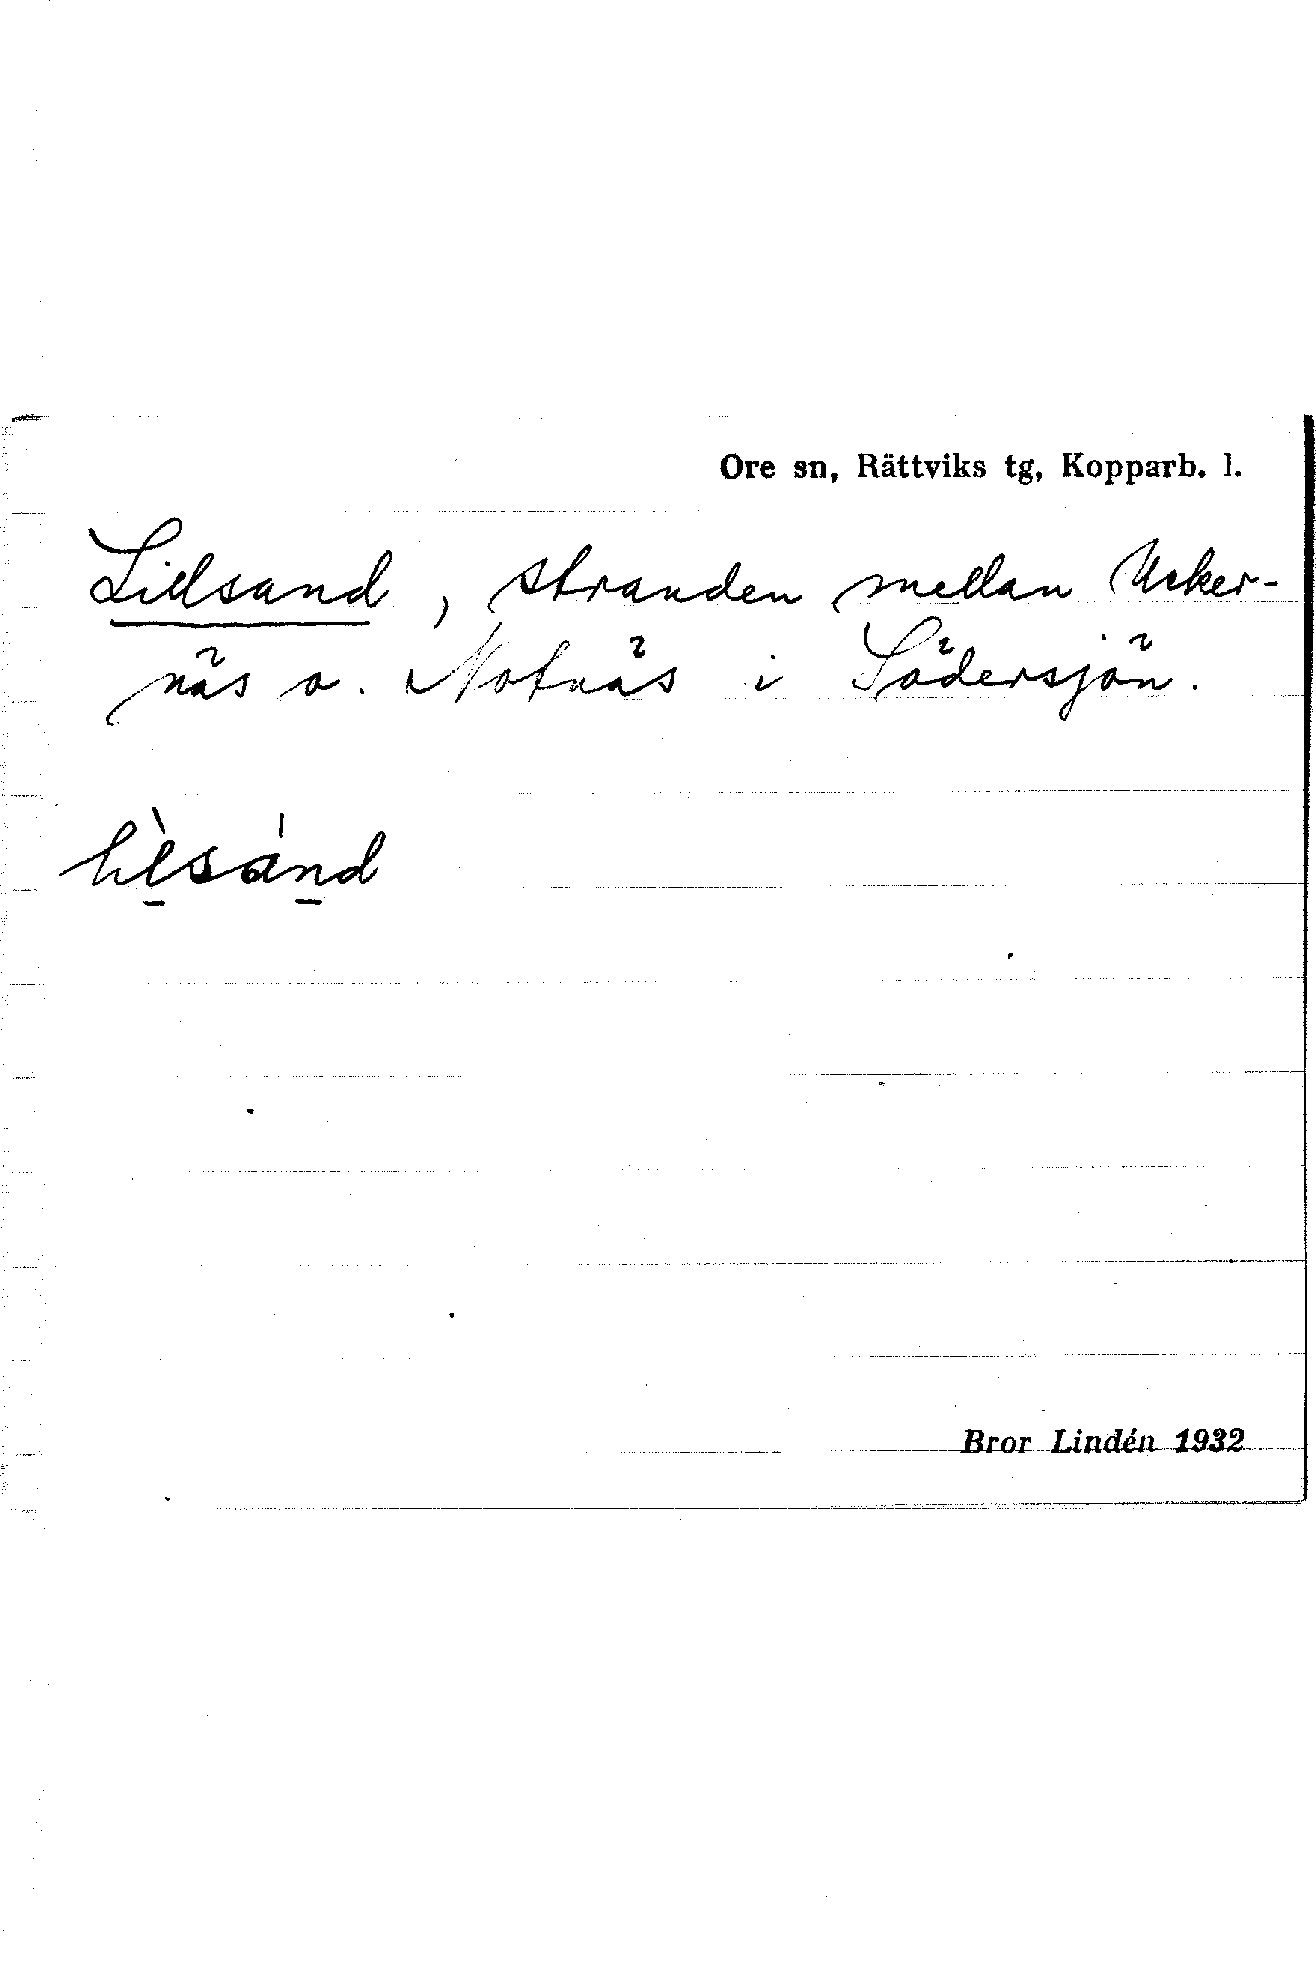 Ore sn, Rättviks tg, Kopparb. l.
Lillsand, stranden mellan Ucker-
näs o. Notnäs i Södersjön.
Bror Lindén 1932